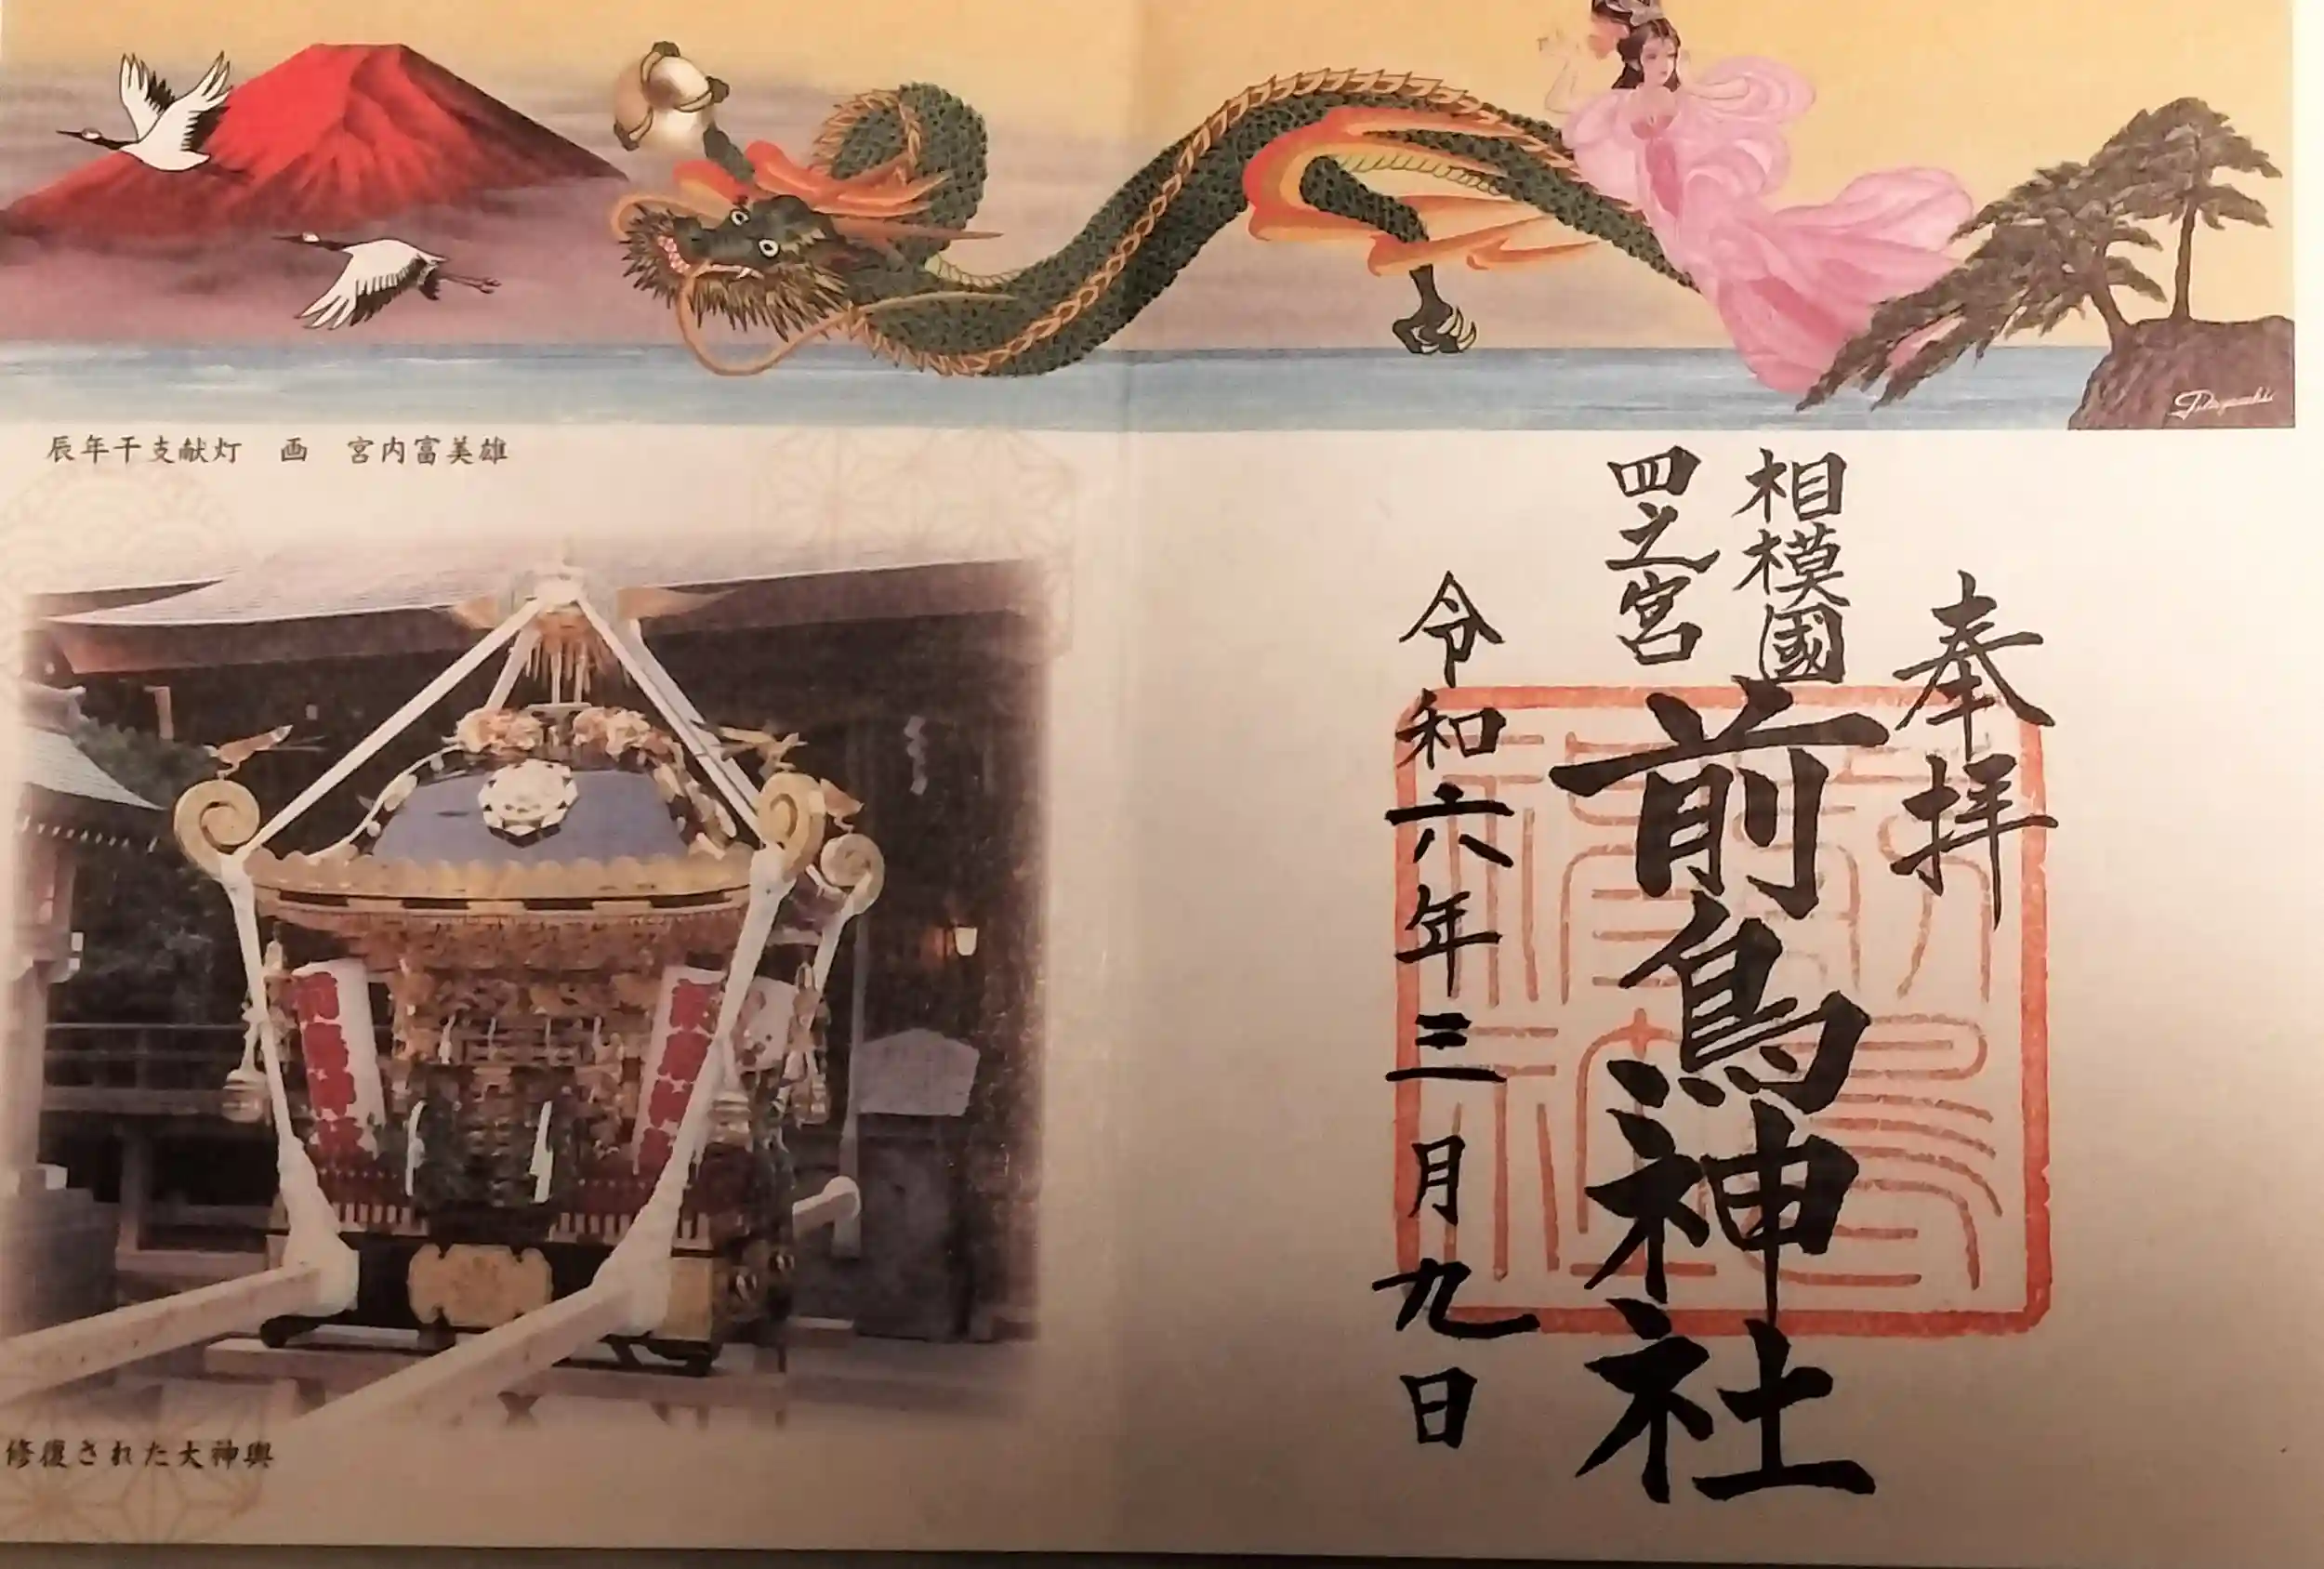 辰年干支献灯 画 宮内富美雄
奉拝
相模國
四之宮
前鳥神社
令和六年三月九日
修復された大神輿